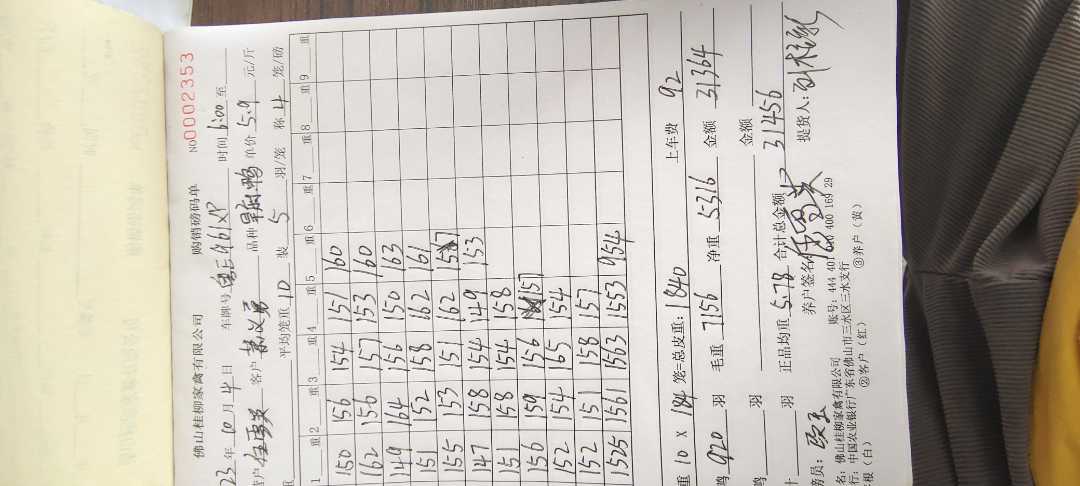 佛山桂柳家禽有限公司 购销磅码单 NO0002353
23 年 10 月 4 日 车牌号 时间 6:00 至
客户 品种 单价 5.9 元/斤
平均笼重 10 装 5 羽/笼 称 4 笼/磅
1 重 2 重 3 重 4 重 5 重 6 重 7 重 8 重 9 重
150 156 154 151 160
162 156 157 153 160
149 164 156 150 163
151 152 158 162 161
155 153 151 162 157
147 158 154 149 153
151 158 154 158
156 159 156 157
152 154 165 154
152 151 158 157
1525 1561 1563 1553 954
重 10 X 184 笼=总皮重: 1840 上车费 92
鸭 920 羽 毛重 7156 净重 5316 金额 31364
鸭 羽 金额
羽 正品均重 5.78 合计总金额 31456
养户签名 提货人:
佛山桂柳家禽有限公司 账号: 444 401 010 400 169 29
行: 中国农业银行广东省佛山市三水区三水支行
根(白) ②客户(红) ③养户(黄)